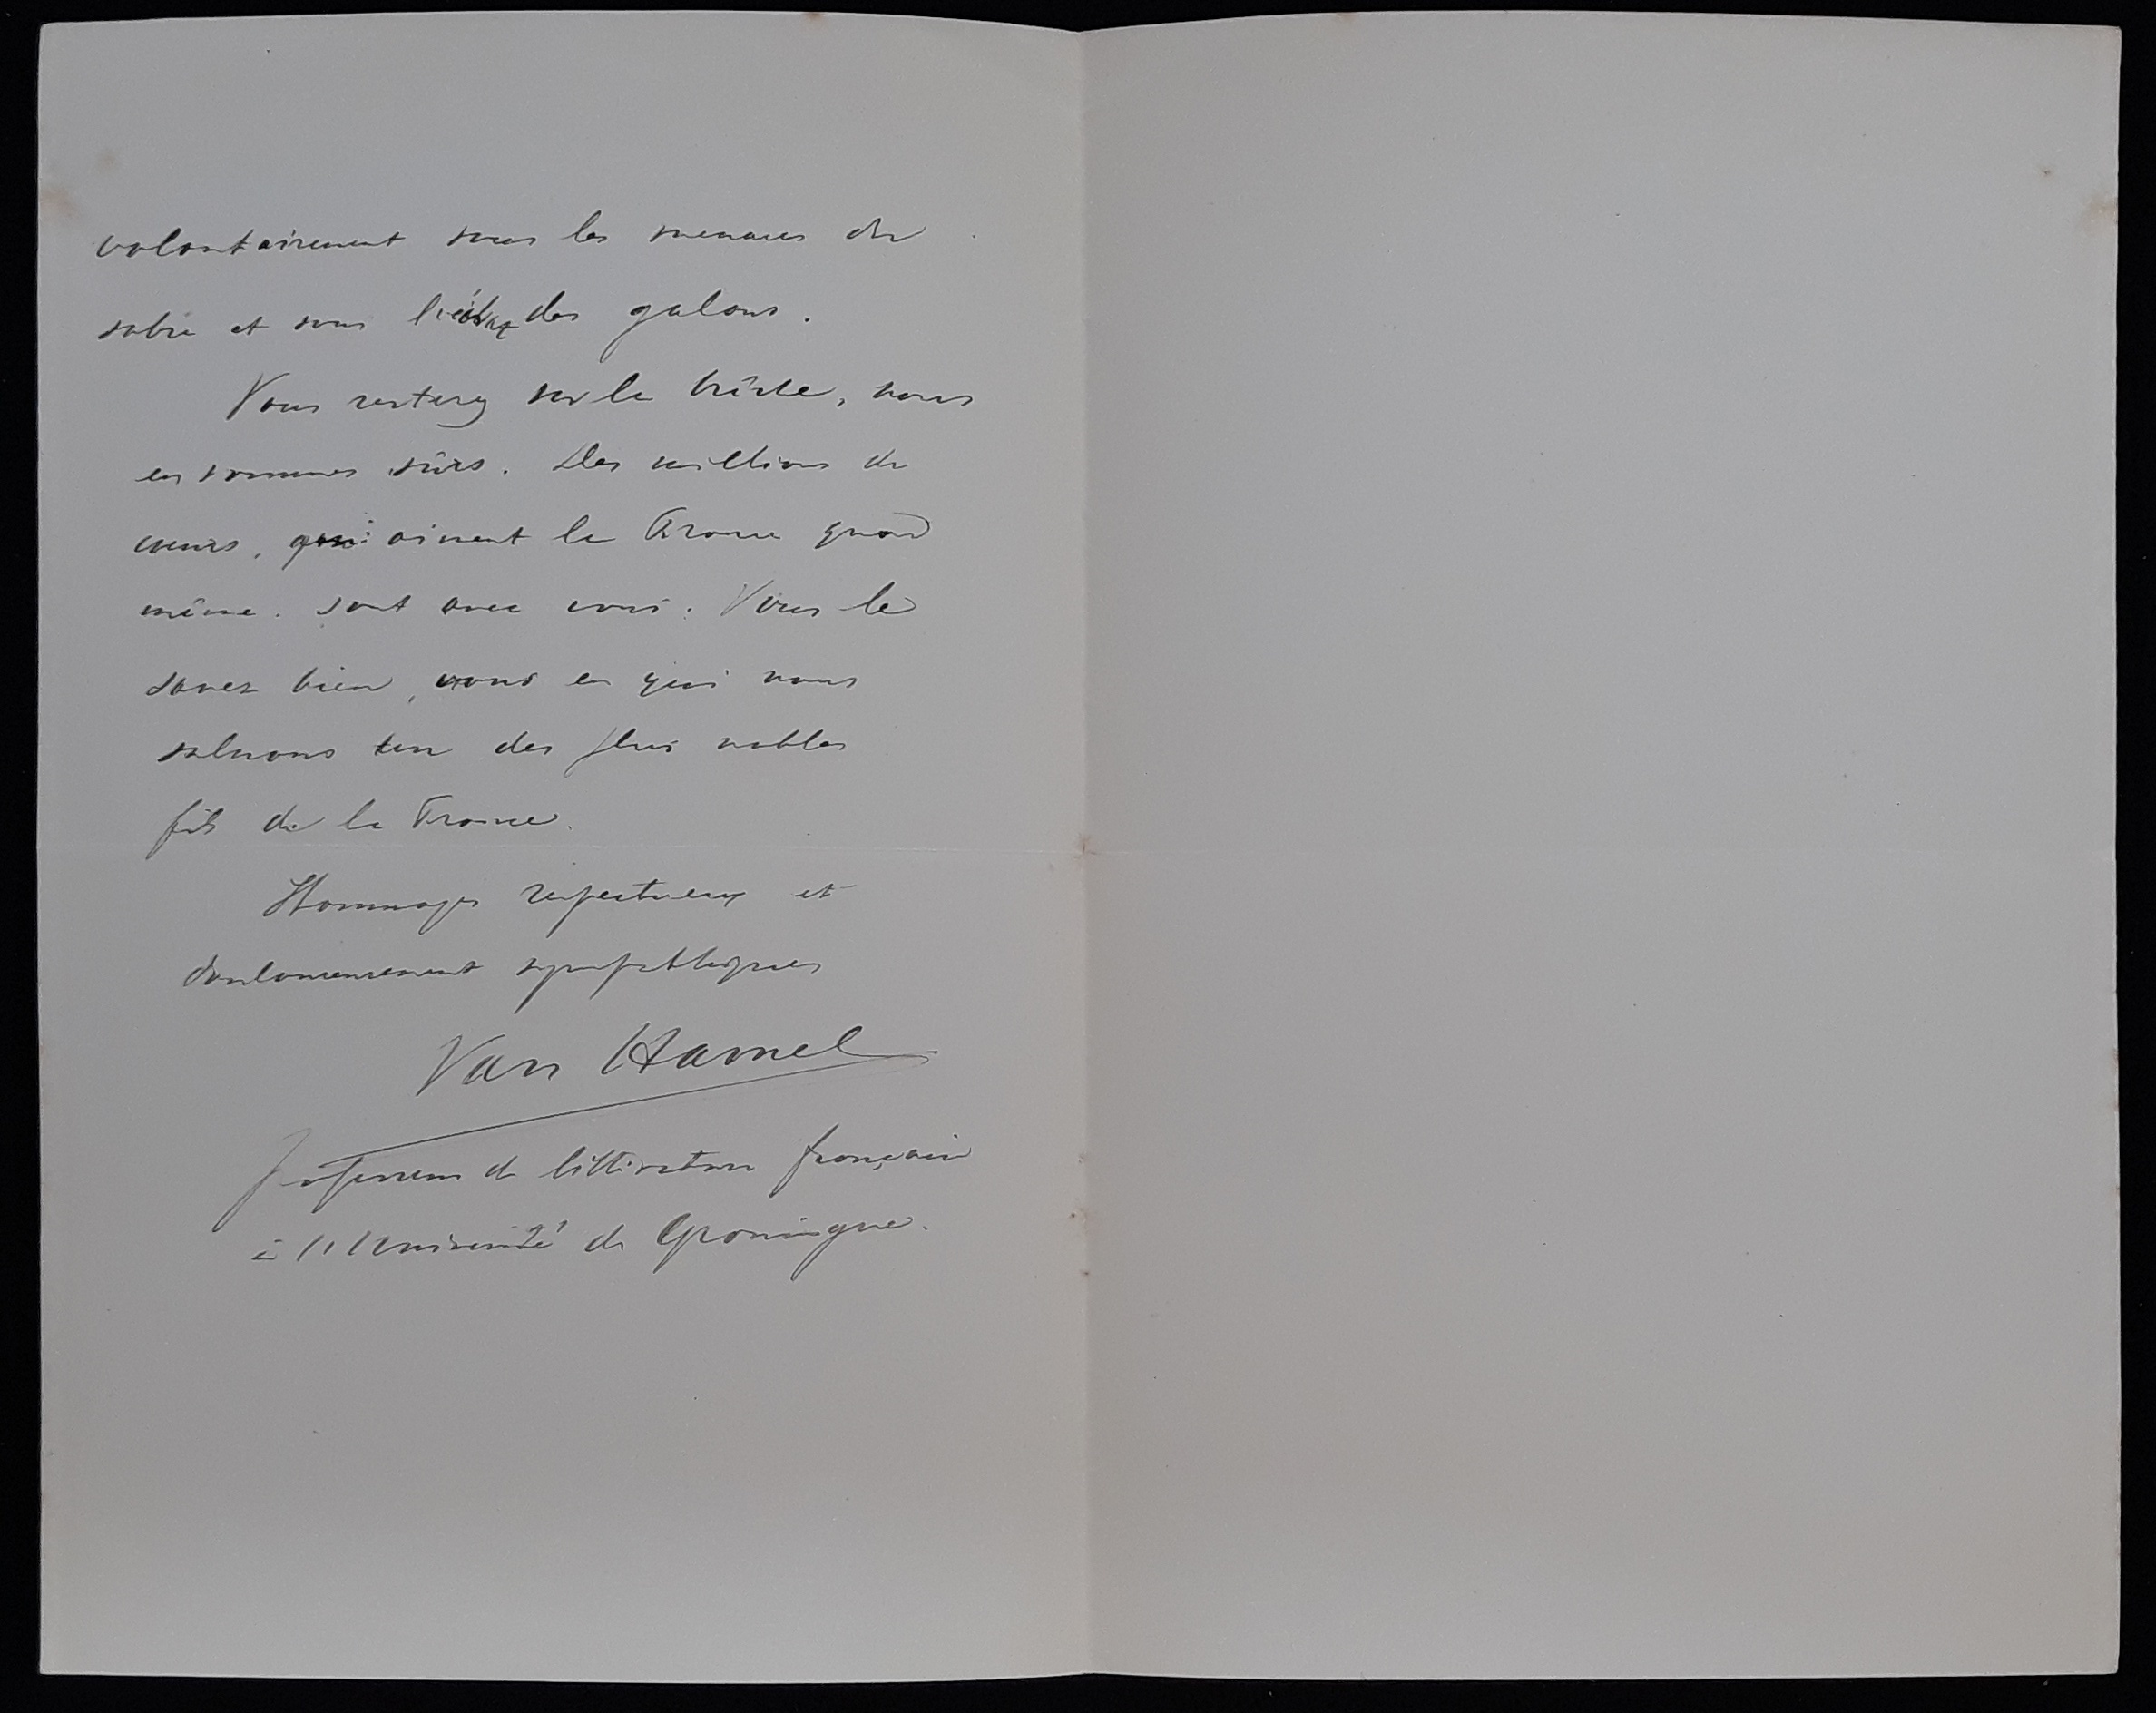 volontairement sous les menaces du
sabre et sous l'éclat des galons.
Vous resterez sur la brêche, nous
en sommes sûrs. Des millions de
cœurs, qui aiment la France quand
même. sont avec vous. Vous le
savez bien, vous en qui nous
saluons un des plus nobles
fils de la France.
Hommages respectueux et
douloureusement sympathiques
Van Hamel
professeur de littérature française
à l'Université de Groningue.